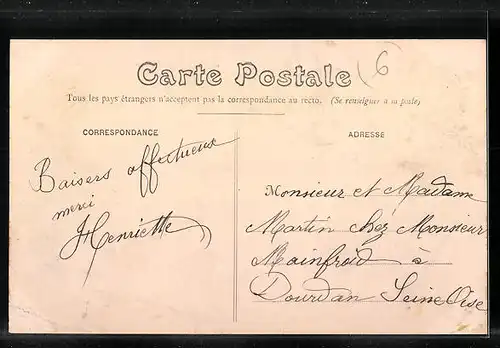 Carte Postale
6
Tous les pays étrangers n'acceptent pas la correspondance au recto. (Se renseigner à la poste)
CORRESPONDANCE
ADRESSE
Baisers affectueux
merci
Henriette
Monsieur et Madame
Martin chez Monsieur
Mainfroid à
Dourdan Seine Oise